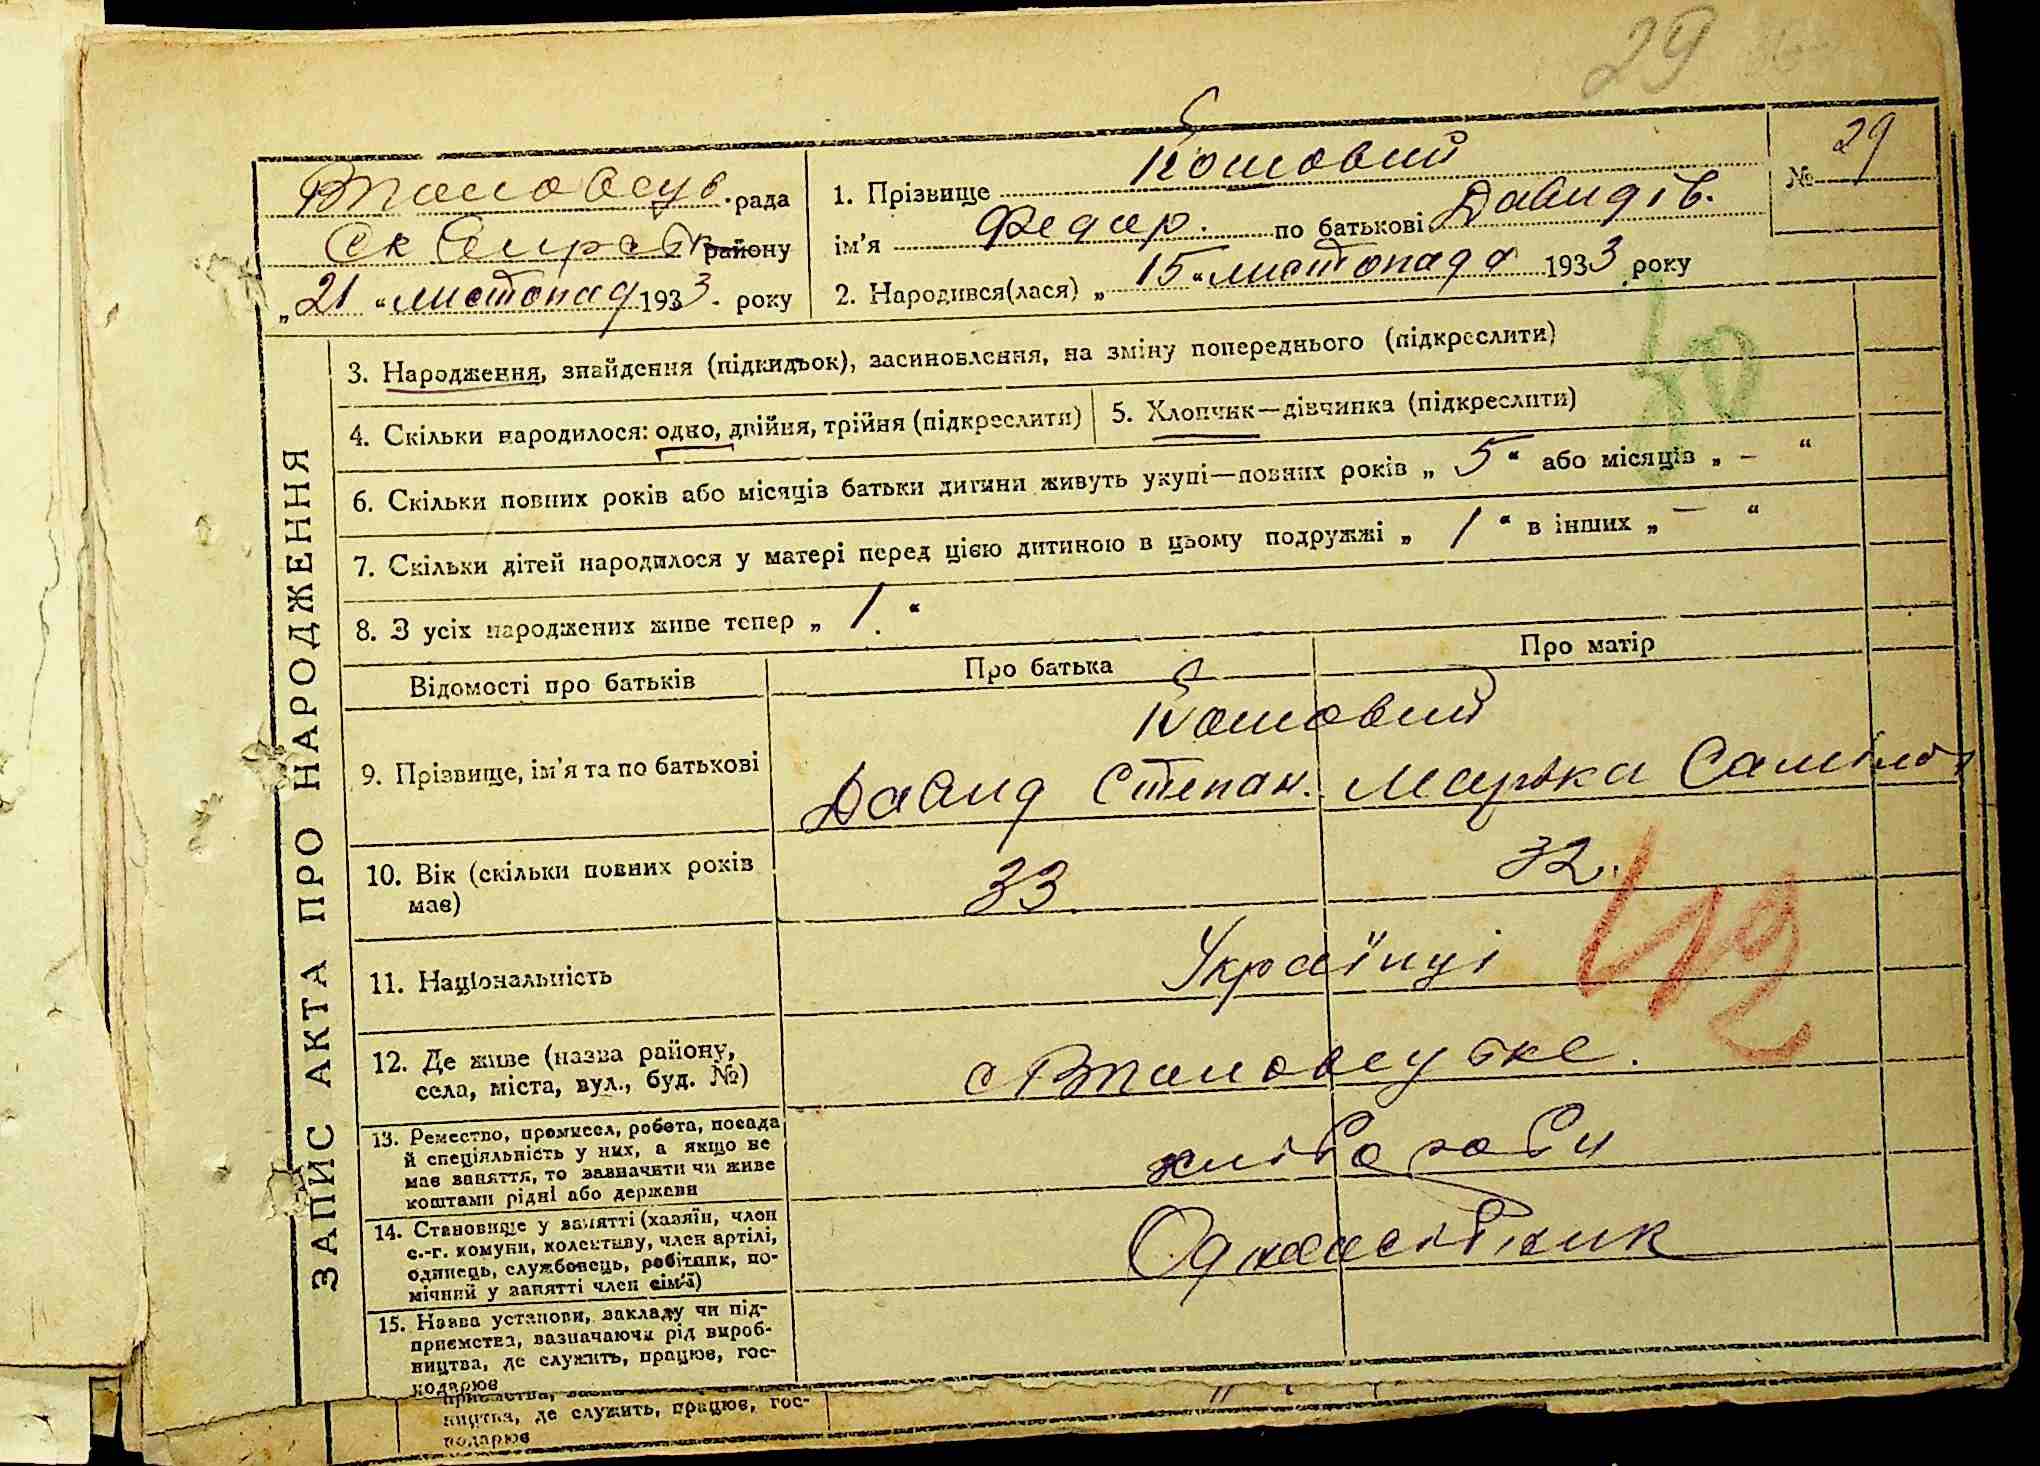 29
29
№
рада
району
„21“ листопад 1933. року
1. Прізвище Кошовий
ім'я Федір. по батькові Давидів.
2. Народився(лася) „15“ листопада 1933 року
30
ЗАПИС АКТА ПРО НАРОДЖЕННЯ
3. Народження, знайдення (підкидьок), засиновлення, на зміну попереднього (підкреслити)
4. Скільки народилося: одно, двійня, трійня (підкреслити)
5. Хлопчик—дівчинка (підкреслити)
6. Скільки повних років або місяців батьки дитини живуть укупі—повних років „5“ або місяців „—“
7. Скільки дітей народилося у матері перед цією дитиною в цьому подружжі „1“ в інших „—“
8. З усіх народжених живе тепер „1.“
Відомості про батьків
Про батька
Про матір
9. Прізвище, ім'я та по батькові
Кошовий
Давид Степан.
10. Вік (скільки повних років
має)
33
32.
11. Національність
Українці
12. Де живе (назва району,
села, міста, вул., буд. №)
13. Ремество, промисел, робота, посада
й спеціяльність у них, а якщо не
має заняття, то зазначити чи живе
коштами рідні або держави
хлібороби
14. Становище у занятті (хазяїн, член
с.-г. комуни, колективу, член артілі,
одинець, службовець, робітник, по-
мічний у занятті член сім'ї)
Одноосібник
15. Назва установи, закладу чи під-
приємства, вазначаючи рід вироб-
ництва, де служить, працює, гос-
подарює
ництва, де служить, працює, гос-
подарює